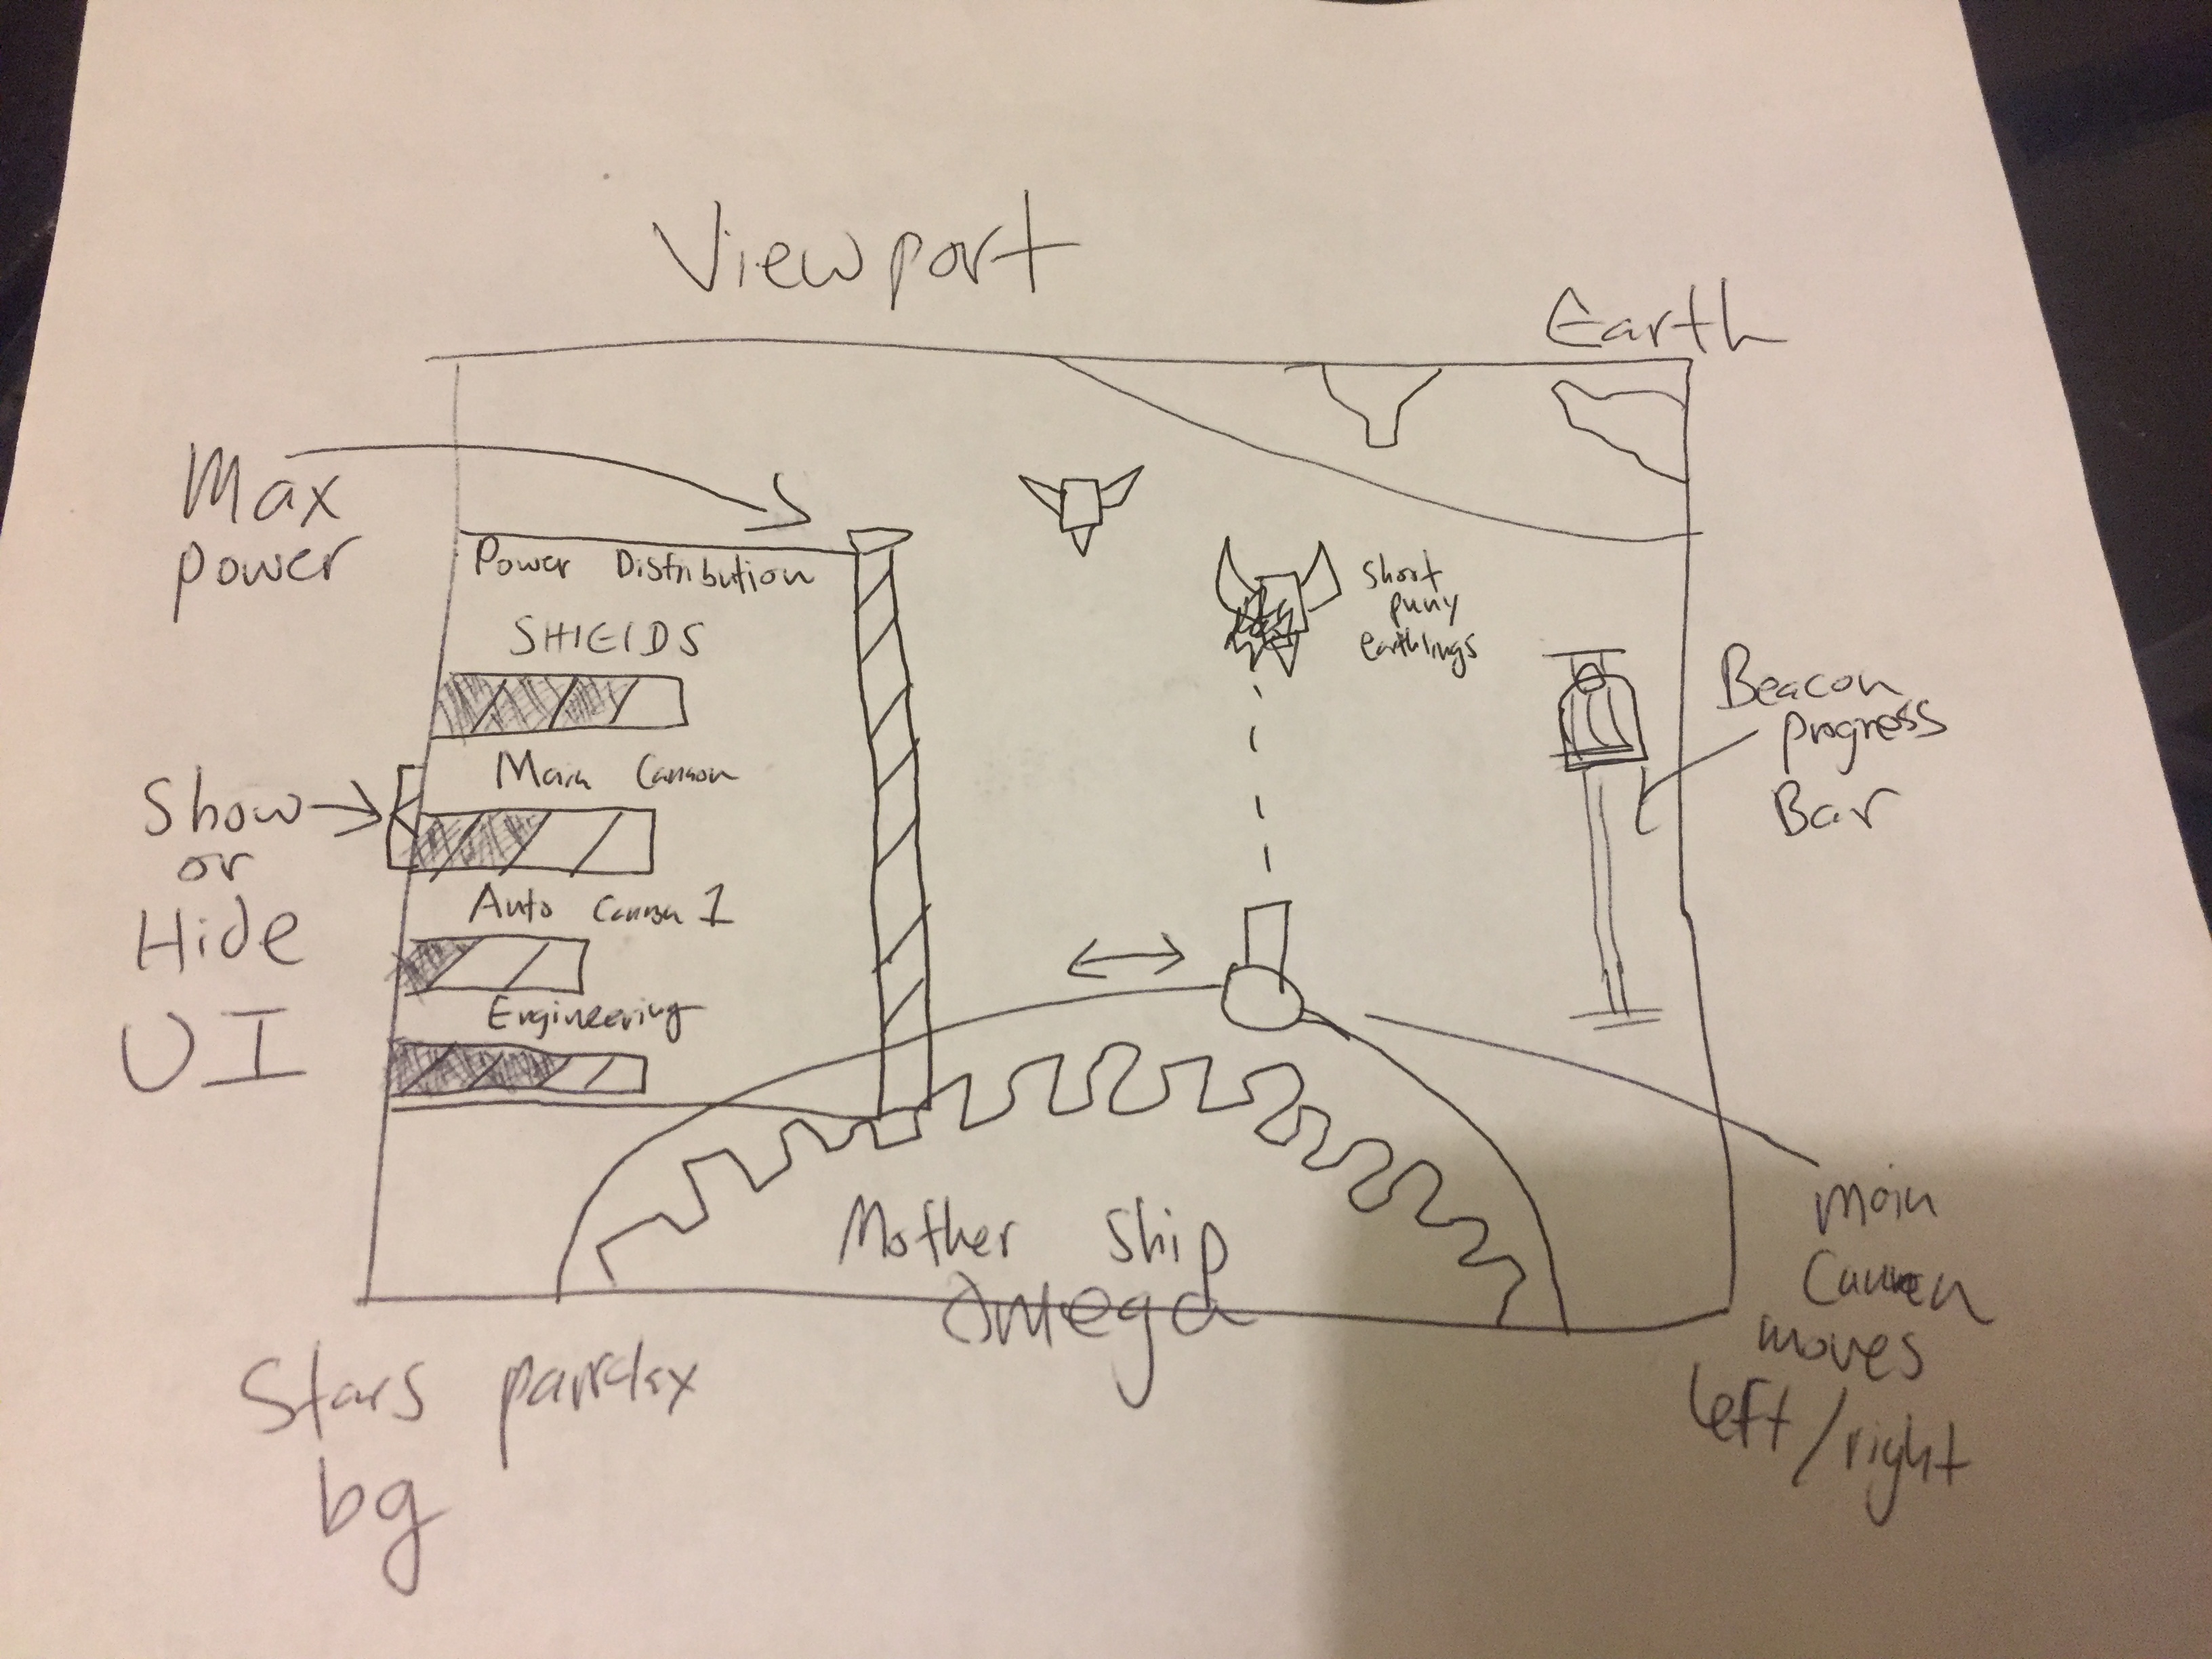 Viewport
Earth
Max
power
Power Distribution
SHIELDS
Main Cannon
Auto Cannon 1
Engineering
Show
or
Hide
UI
Shoot
puny
earthlings
Beacon
progress
Bar
Mother Ship
Omega
Main
Cannon
moves
left/right
Stars parralax
bg